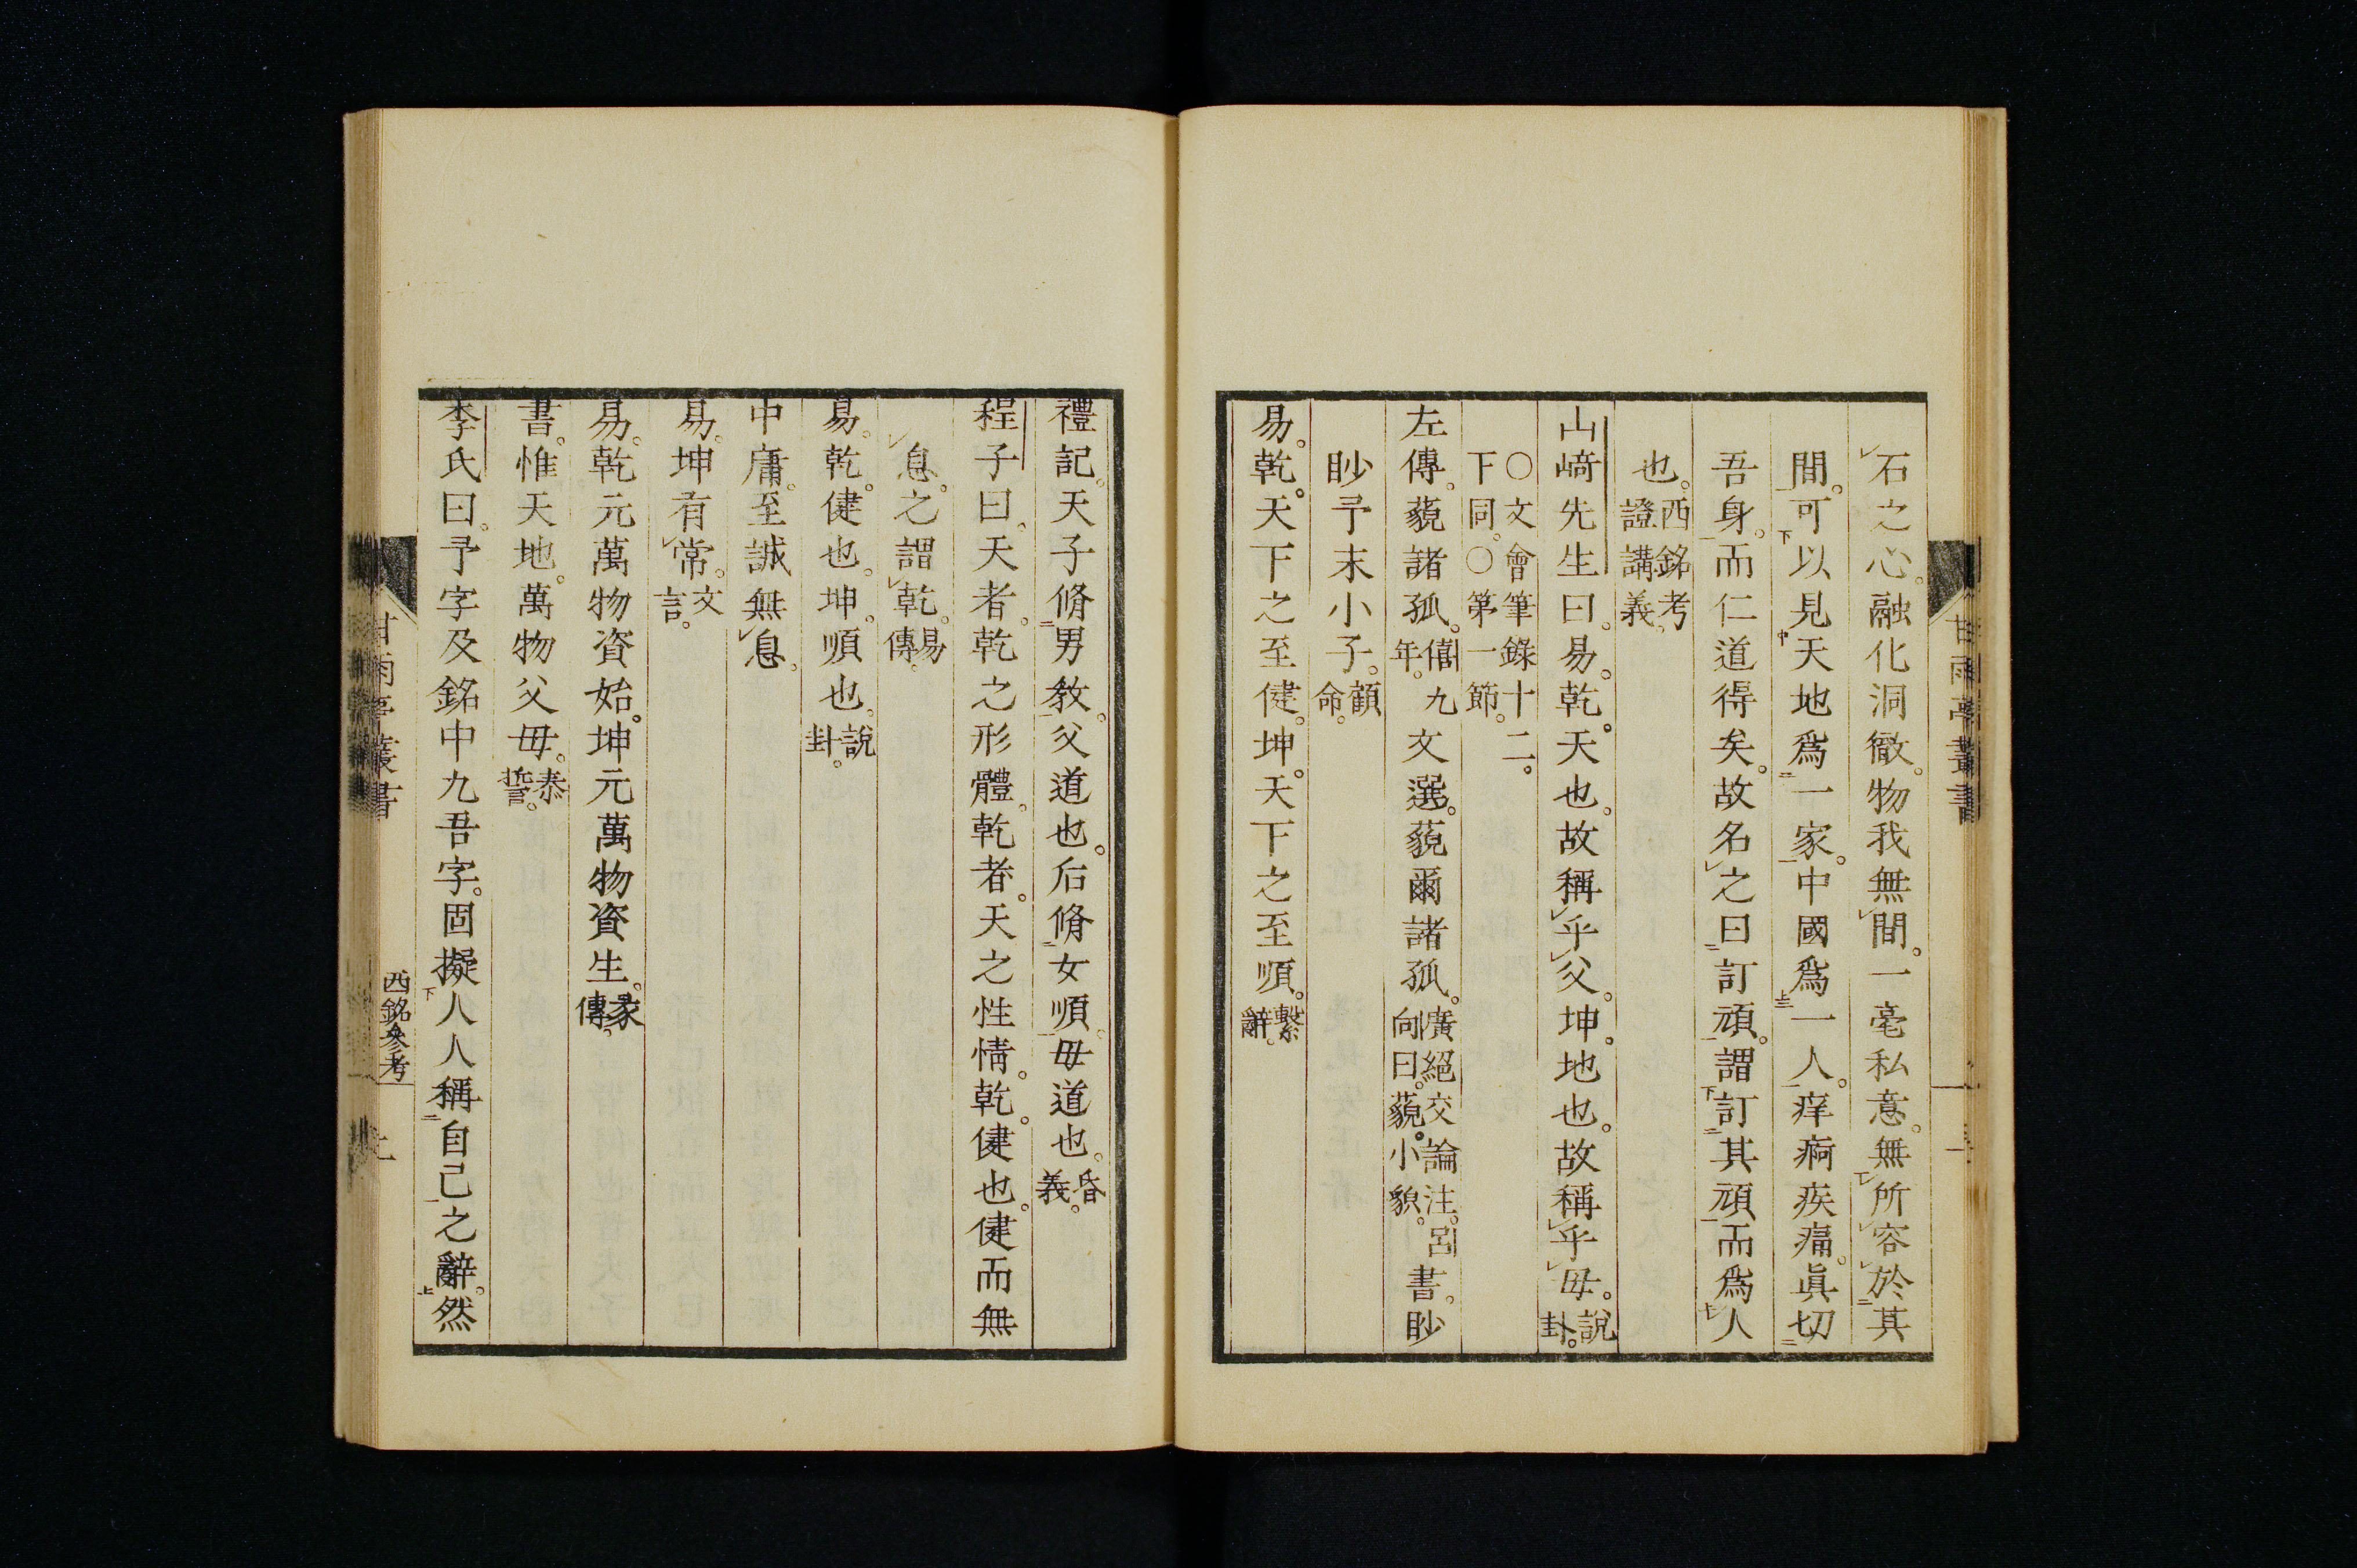 石之心。融化洞徹。物我無間。一毫私意。無所容於其
間。可以見天地爲一家。中國爲一人。痒痾疾痛。眞切
吾身。而仁道得矣。故名之曰訂頑。謂訂其頑而爲人
也。西銘考證講義。
山﨑先生曰。易。乾。天也。故稱乎父。坤。地也。故稱乎母。說卦。
〇文會筆錄十二。下同。〇第一節。
左傳。藐諸孤。僖九年。文選。藐爾諸孤。廣絕交論注。呂向曰。藐。小貌。書。眇
眇予末小子。顧命。
易。乾。天下之至健。坤。天下之至順。繫辭。
甘雨亭叢書
禮記。天子脩男敎。父道也。后脩女順。母道也。昏義。
程子曰。天者。乾之形體。乾者。天之性情。乾。健也。健而無
息。之謂乾。易傳。
易。乾。健也。坤。順也。說卦。
中庸。至誠無息。
易。坤有常。文言。
易。乾元萬物資始。坤元萬物資生。彖傳。
書。惟天地。萬物父母。泰誓。
李氏曰。予字及銘中九吾字。固擬人人稱自己之辭。然
甘雨亭叢書 西銘參考